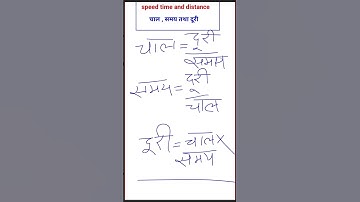 speed time and distance
चाल , समय तथा दूरी
चाल = दूरी
समय
समय = दूरी
चाल
दूरी = चाल ×
समय